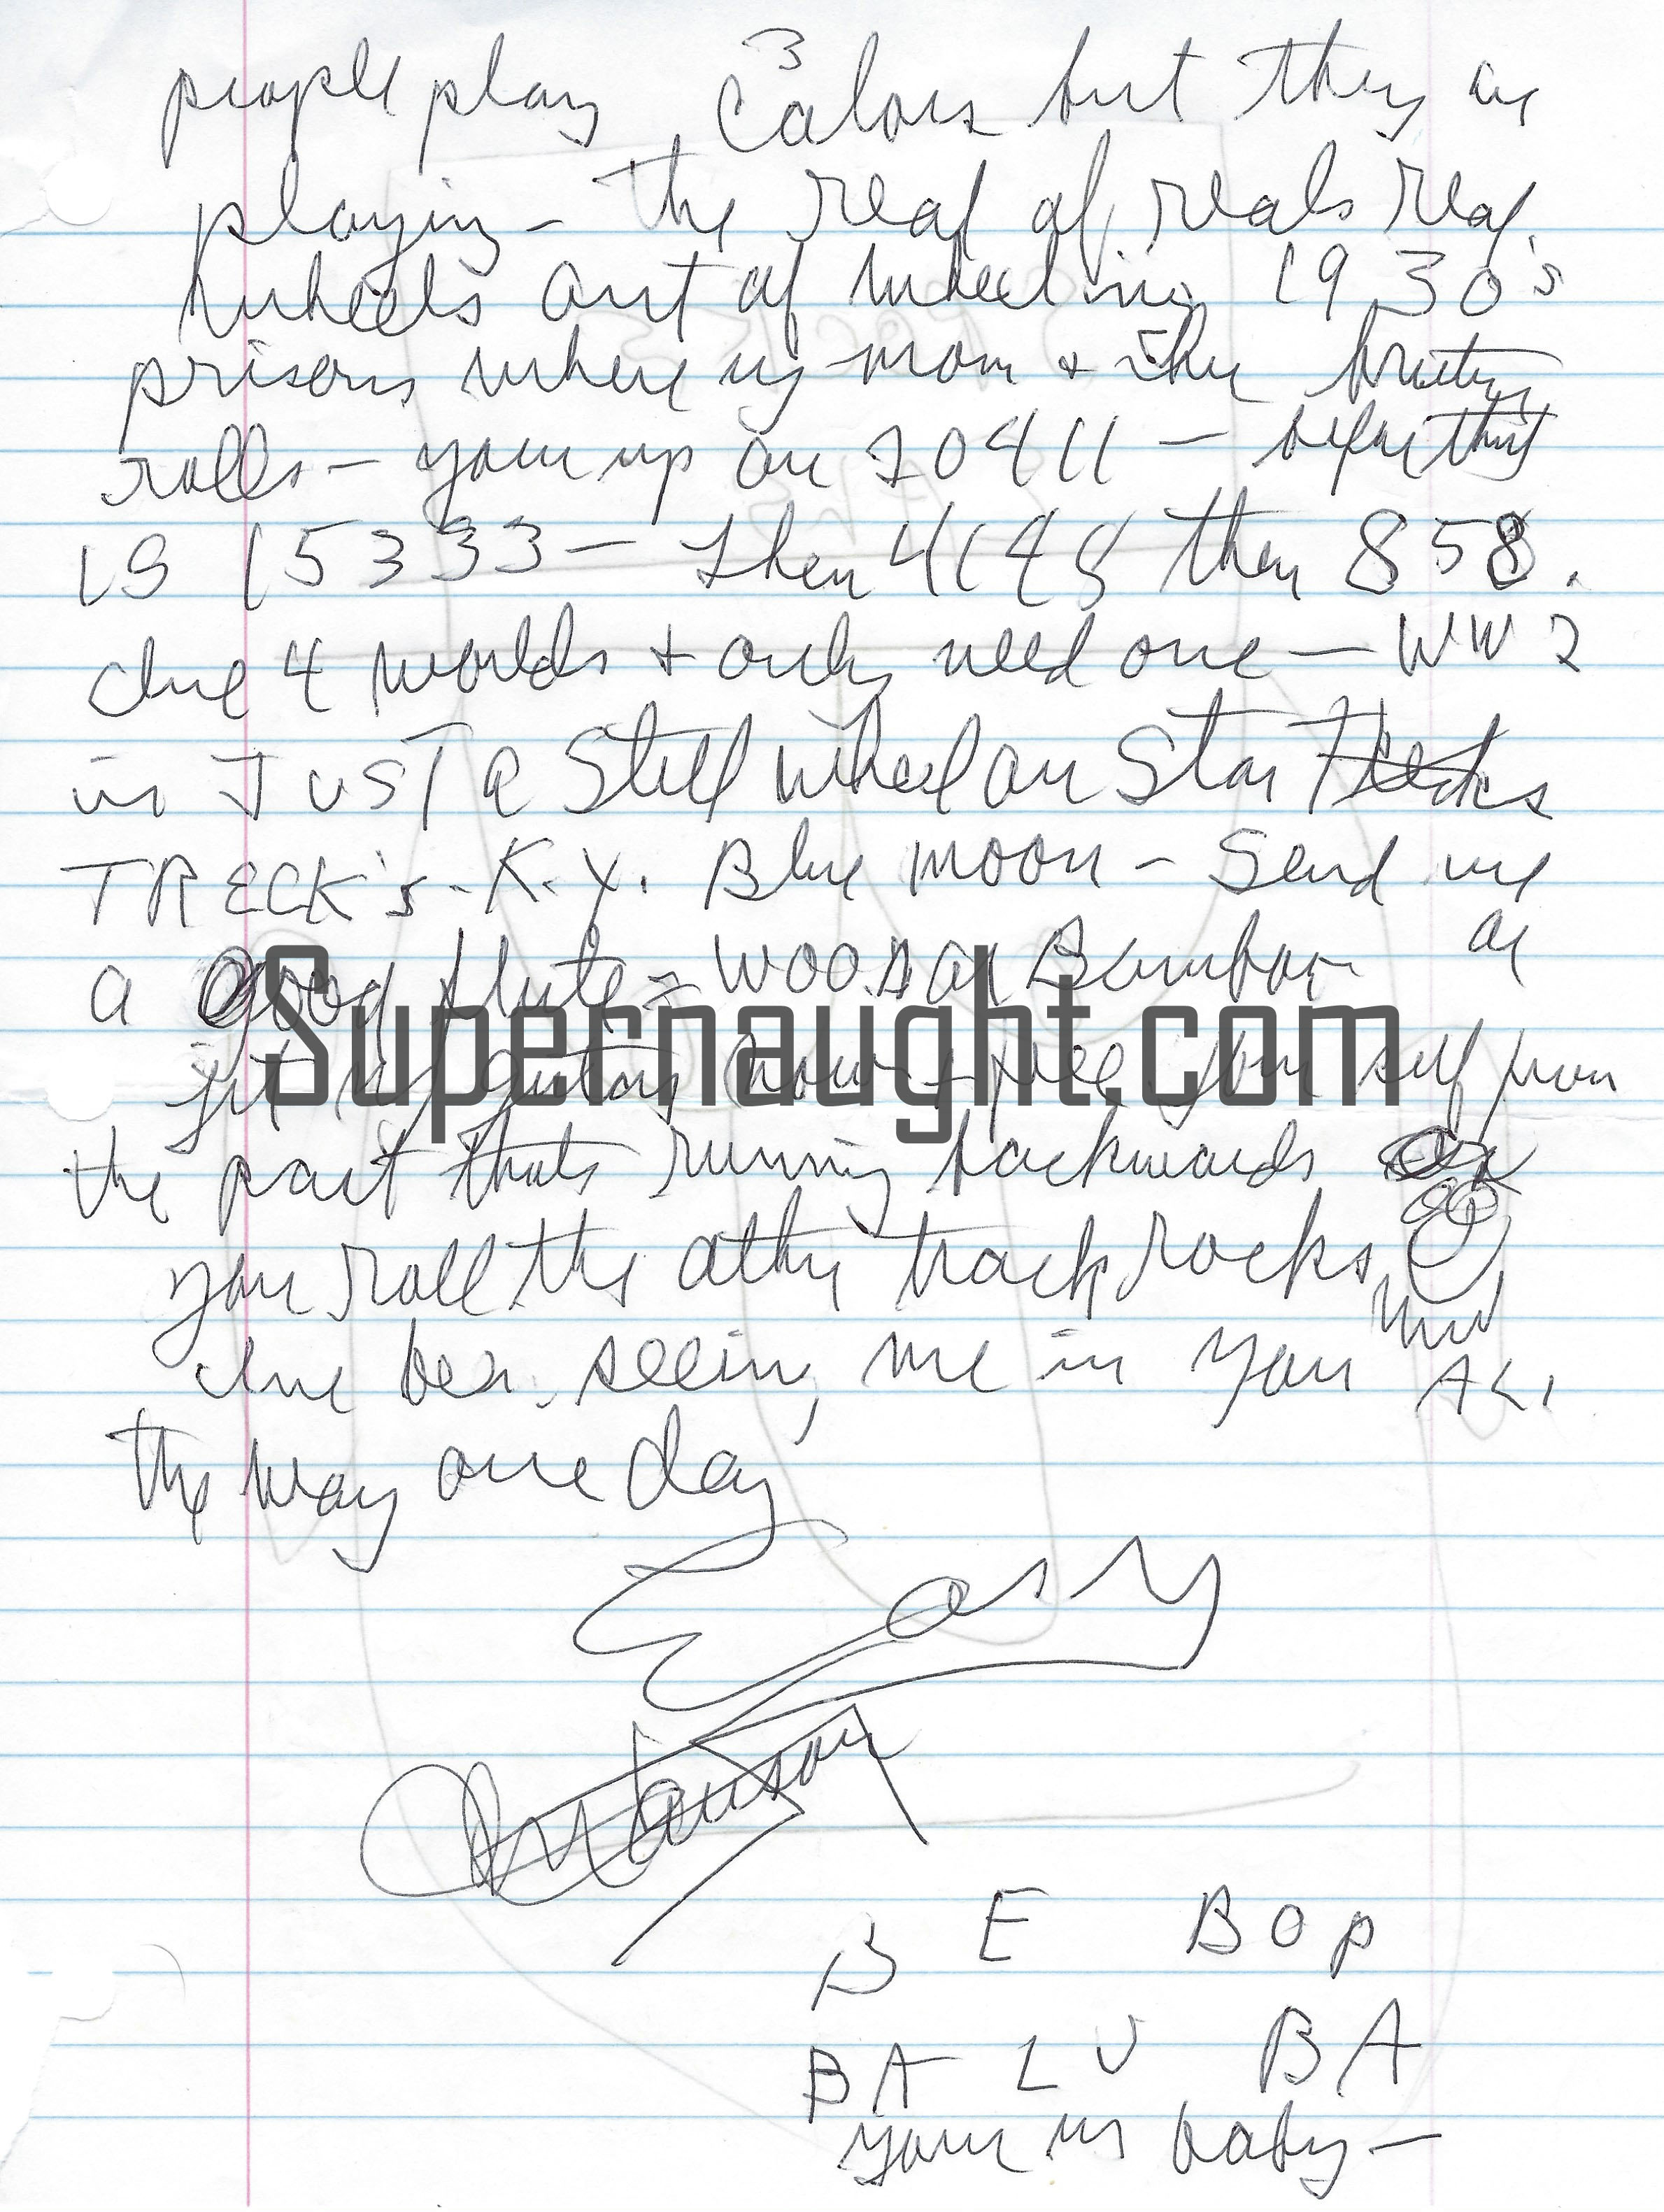 people play 3 colors but they are
playing - the real of reals real
wheels out of wheeling 1930's
prisons where my mom + the
rolls - your up on 20411 - before that
is 15333 - then 4148 then 858.
Ive 4 worlds + only need one - WW2
in JUST a Steel wheel on Star
TRECK's - K.Y. Blue moon - Send me
a good flute = WOOD or Bamboo or
Supernaught.com
guitar now - free your self from
the past thats running backwards
you roll the other track rocks
Ive been seeing me in you ALL
the way one day
Easy
Manson
B E BOP
BA LU BA
your my baby -